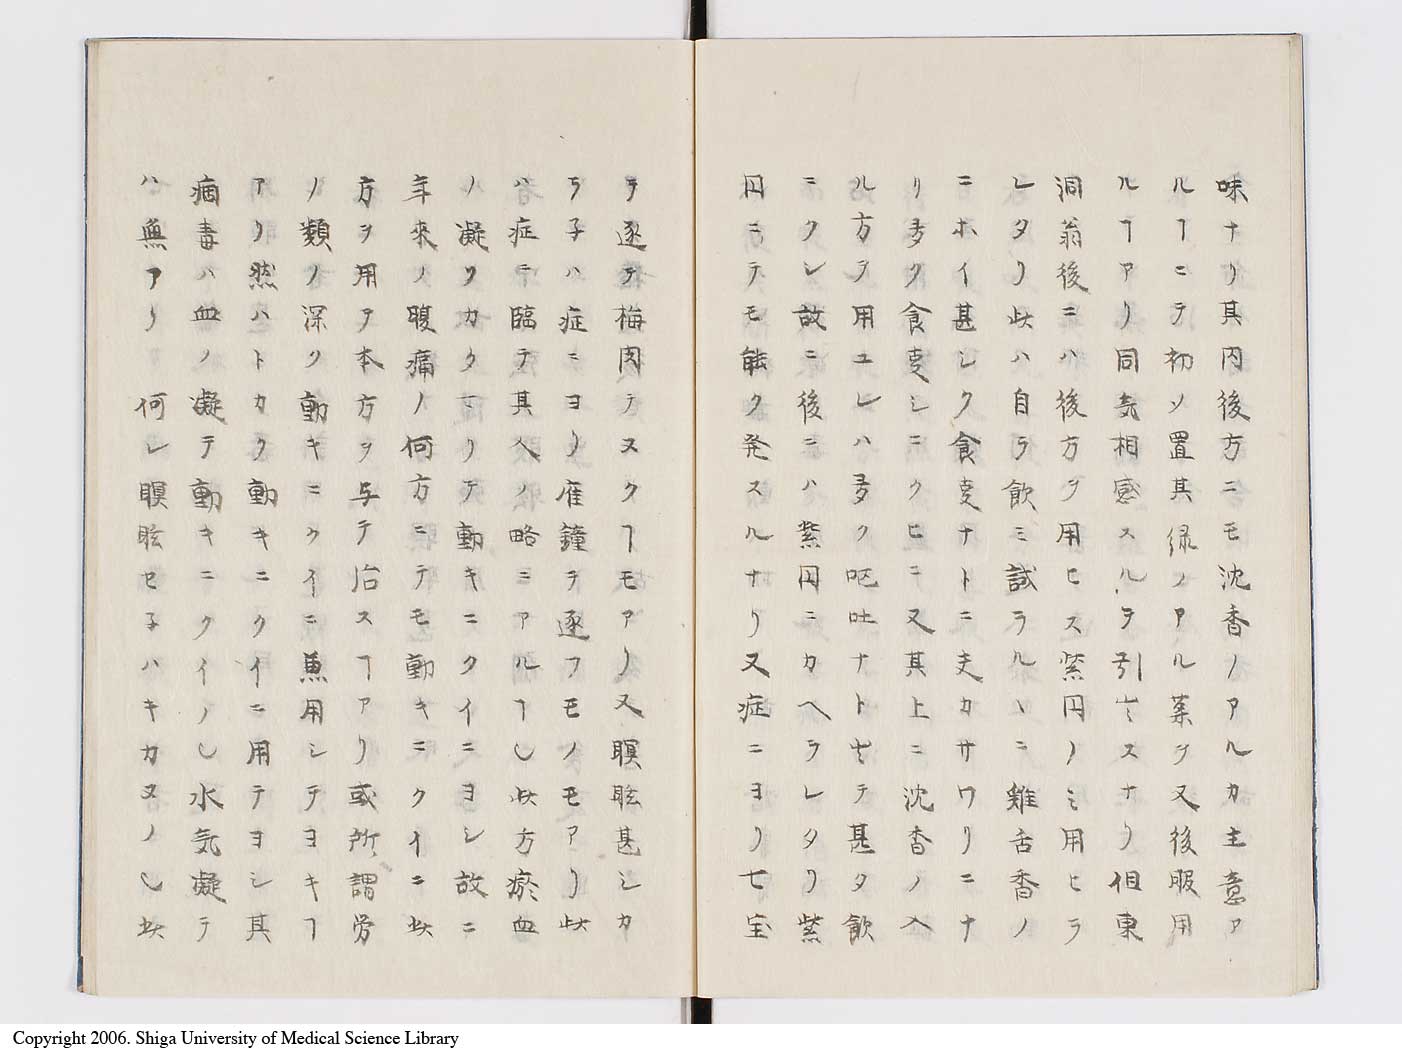 味ナリ其内後方ニモ沈香ノアルカ主意ア
ルヿニテ初ソ置其縁ノアル薬ヲ又後服用
ルヿアリ同気相感スルヲ引出スナリ但東
洞翁後ニハ後方ヲ用ヒス紫円ノミ用ヒラ
レタリ此ハ自ラ飲ミ試ラルヽニ雞舌香ノ
ニホイ甚シク食叓ナトニ支カサワリニナ
リ多ク食叓シニクヒニ又其上ニ沈香ノ入
ル方ヲ用ユレハ多ク呕吐ナトセテ甚タ飲
ニクシ故ニ後ニハ紫円ニカヘラレタリ紫
円ニテモ能ク発スルナリ又症ニヨリ七宝
ヲ逐テ梅肉テヌクヿモアリ又瞑眩甚シカ
ラ子ハ症ニヨリ応鐘テ逐フモノモアリ此
ハ症ニ臨テ其人ノ略ニアルヿ乄此方瘀血
ノ凝リカタマリテ動キニクイニヨシ故ニ
年來ノ腹痛ノ何方ニテモ動キニクイニ此
方ヲ用ヲ本方ヲ与テ治スヿアリ或所謂労
ノ類ノ深ク動キニクイニ兼用シテヨキヿ
アリ然ハトカク動キニクイニ用テヨシ其
病毒ハ血ノ凝テ動キニクイノ乄水気凝テ
ハ無アリ何レ瞑眩セ子ハキカヌノ乄此